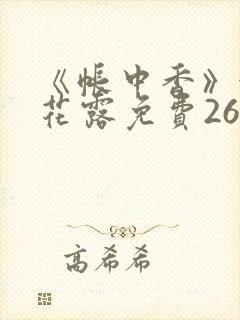 《帐中香》
花露免費26
高希希